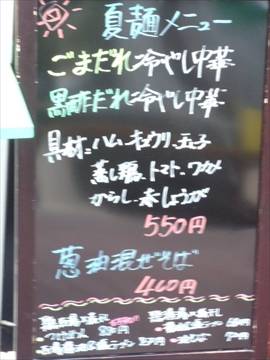 夏麺メニュー
ごまだれ冷やし中華
黒酢だれ冷やし中華
具材:ハム・キュウリ・玉子
蒸し鶏、トマト・ワカメ
からし・赤しょうが
550円
葱油混ぜそば
460円